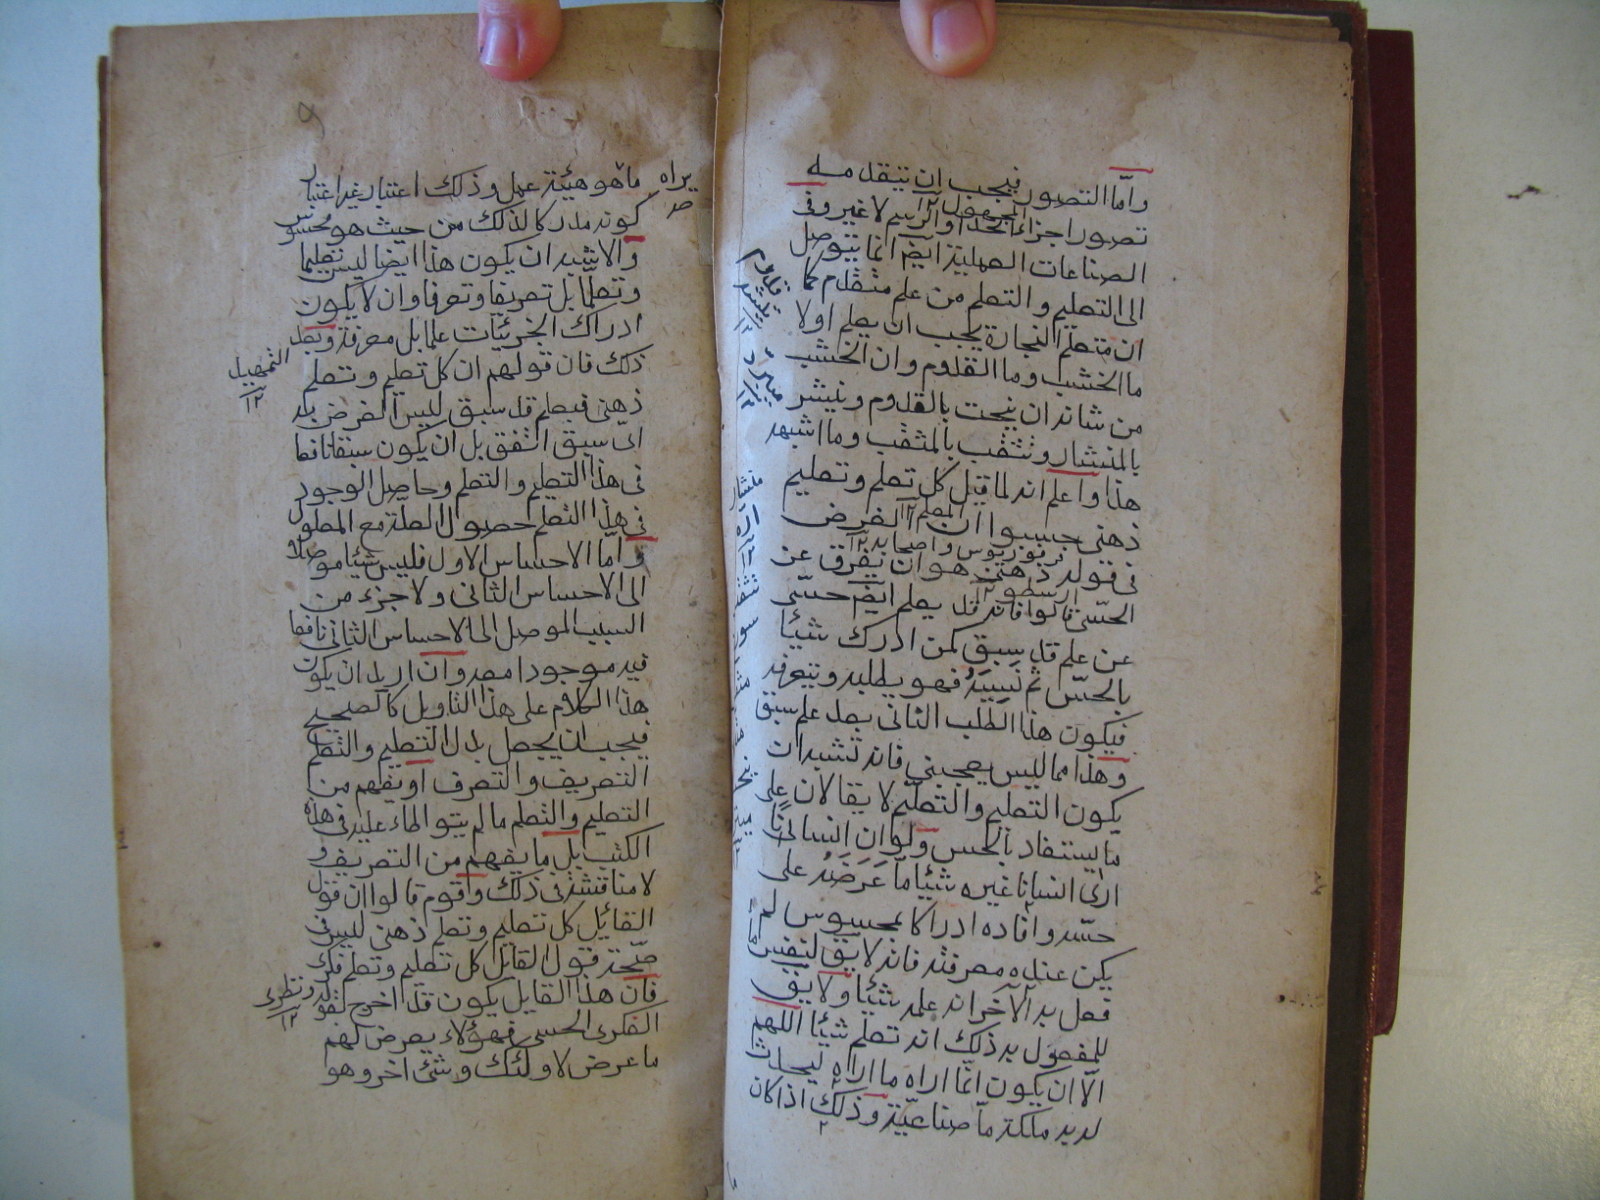 واما التصور فيجب ان يتقدمه
تصور اجزاء الحد او الرسم لا غير وفى
المجهول ١٢
الصناعات العملية ايضا انما يتوصل
الى التعليم والتعلم من علم متقدم كما
ان متعلم النجارة يجب ان يعلم اولا
ما الخشب وما القدوم وان الخشب
من شانه ان ينحت بالقدوم وينشر
بالمنشار ويثقب بالمثقب وما اشبه
هذا واعلم انه لما قيل كل تعلم وتعليم
ذهنى حسبوا ان الغرض
المعلم ١٢
فى قوله ذهنى هو ان يفرق عن
واصحابه ١٢
الحسى قالوا فانه قد يعلم ايضا حسى
ارسطو ١٢
عن علم قد سبق كمن ادرك شيئا
بالحس ثم نسيه فهو يطلبه ويتعرفه
فيكون هذا الطلب الثانى بعد علم سبق
وهذا مما ليس يعجبنى فانه تشبه ان
يكون التعليم والتعلم لا يقالان على
ما يستفاد بالحس ولو ان انسانا
ارى انسانا غيره شيئا ما عرضه على
حسه وافاده ادراكا بمحسوس لم
يكن عنده معرفته فانه لا يق لنفس
فعل به الآخر انه علمه شيئا ولا يق
للمفعول به ذلك انه تعلم شيئا اللهم
الا ان يكون انما اراه ما اراه ليحدث
لديه ملكة ما صناعية وذلك اذا كان
قدوم
منشار
اره
يراه
ما هو هيئة عمل وذلك اعتبار غير اعتبار
كونه مدركا لذلك من حيث هو محسوس
والاشبه ان يكون هذا ايضا ليس تعليما
وتعلما بل تعريفا وتعرفا وان لا يكون
ادراك الجزئيات علما بل معرفة وبعد
ذلك فان قولهم ان كل تعليم وتعلم
التمهيل
١٢
ذهنى فبعلم قد سبق ليس الغرض به
اى سبق اتفق بل ان يكون سبقا نافعا
فى هذا التعليم والتعلم وحاصل الوجود
فى هذا التعلم حصول العلة مع المعلول
واما الاحساس الاول فليس شيئا موصلا
الى الاحساس الثانى ولا جزء من
السبب الموصل الى الاحساس الثانى نافعا
فيه موجودا معه وان اريد ان يكون
هذا الكلام على هذا التاويل كالصحيح
فيجب ان يجعل بدل التعليم والتعلم
التعريف والتعرف او يفهم من
التعليم والتعلم ما لم يتواطاء عليه فى هذه
الكتب بل ما يفهم من التعريف و
لا مناقشة فى ذلك وقوم قالوا ان قول
القائل كل تعليم وتعلم ذهنى ليس فى
صحة قول القايل كل تعليم وتعلم فكرى
فان هذا القايل يكون قد اخرج لقوله
ونظرى
١٢
الفكرى الحسى فهؤلاء يعرض لهم
ما عرض لاولئك وشئ اخر وهو